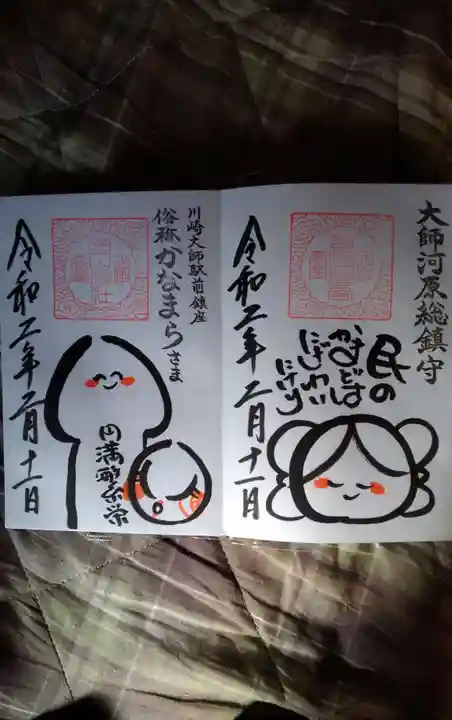 大師河原総鎮守
民の
かまどは
にぎわい
にけり
令和二年二月十一日
川崎大師駅前鎮座
俗称かなまらさま
円満繁栄
令和二年二月十一日